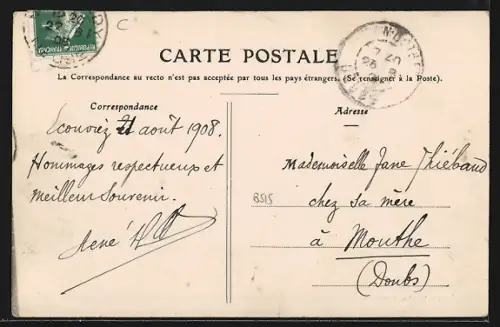 C
CARTE POSTALE
La Correspondance au recto n'est pas acceptée par tous les pays étrangers. (Se renseigner à la Poste).
Correspondance
Adresse
Ecouviez 21 août 1908.
Hommages respectueux et
meilleur souvenir.
René
Mademoiselle Jane Thiébaud
chez sa mère
à Mouthe
(Doubs)
B515